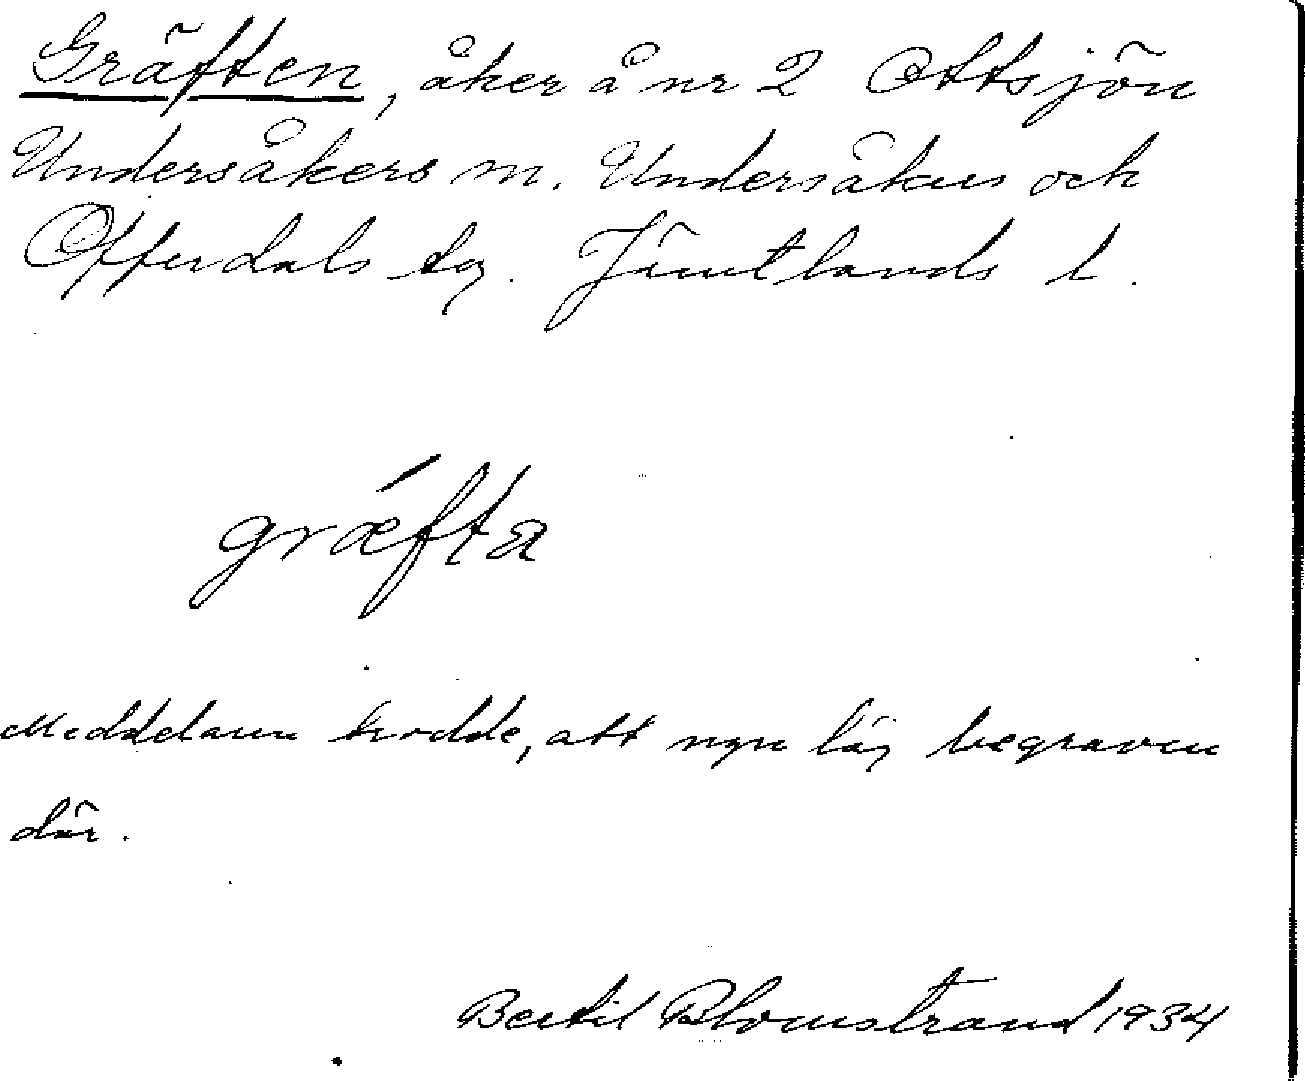 Gräften, åker å nr 2 Ottsjön
Undersåkers sn. Undersåkers och
Offerdals tg. Jämtlands l.
græ´fta
Meddelaren trodde, att ngn låg begraven
där.
Bertil Blomstrand 1934